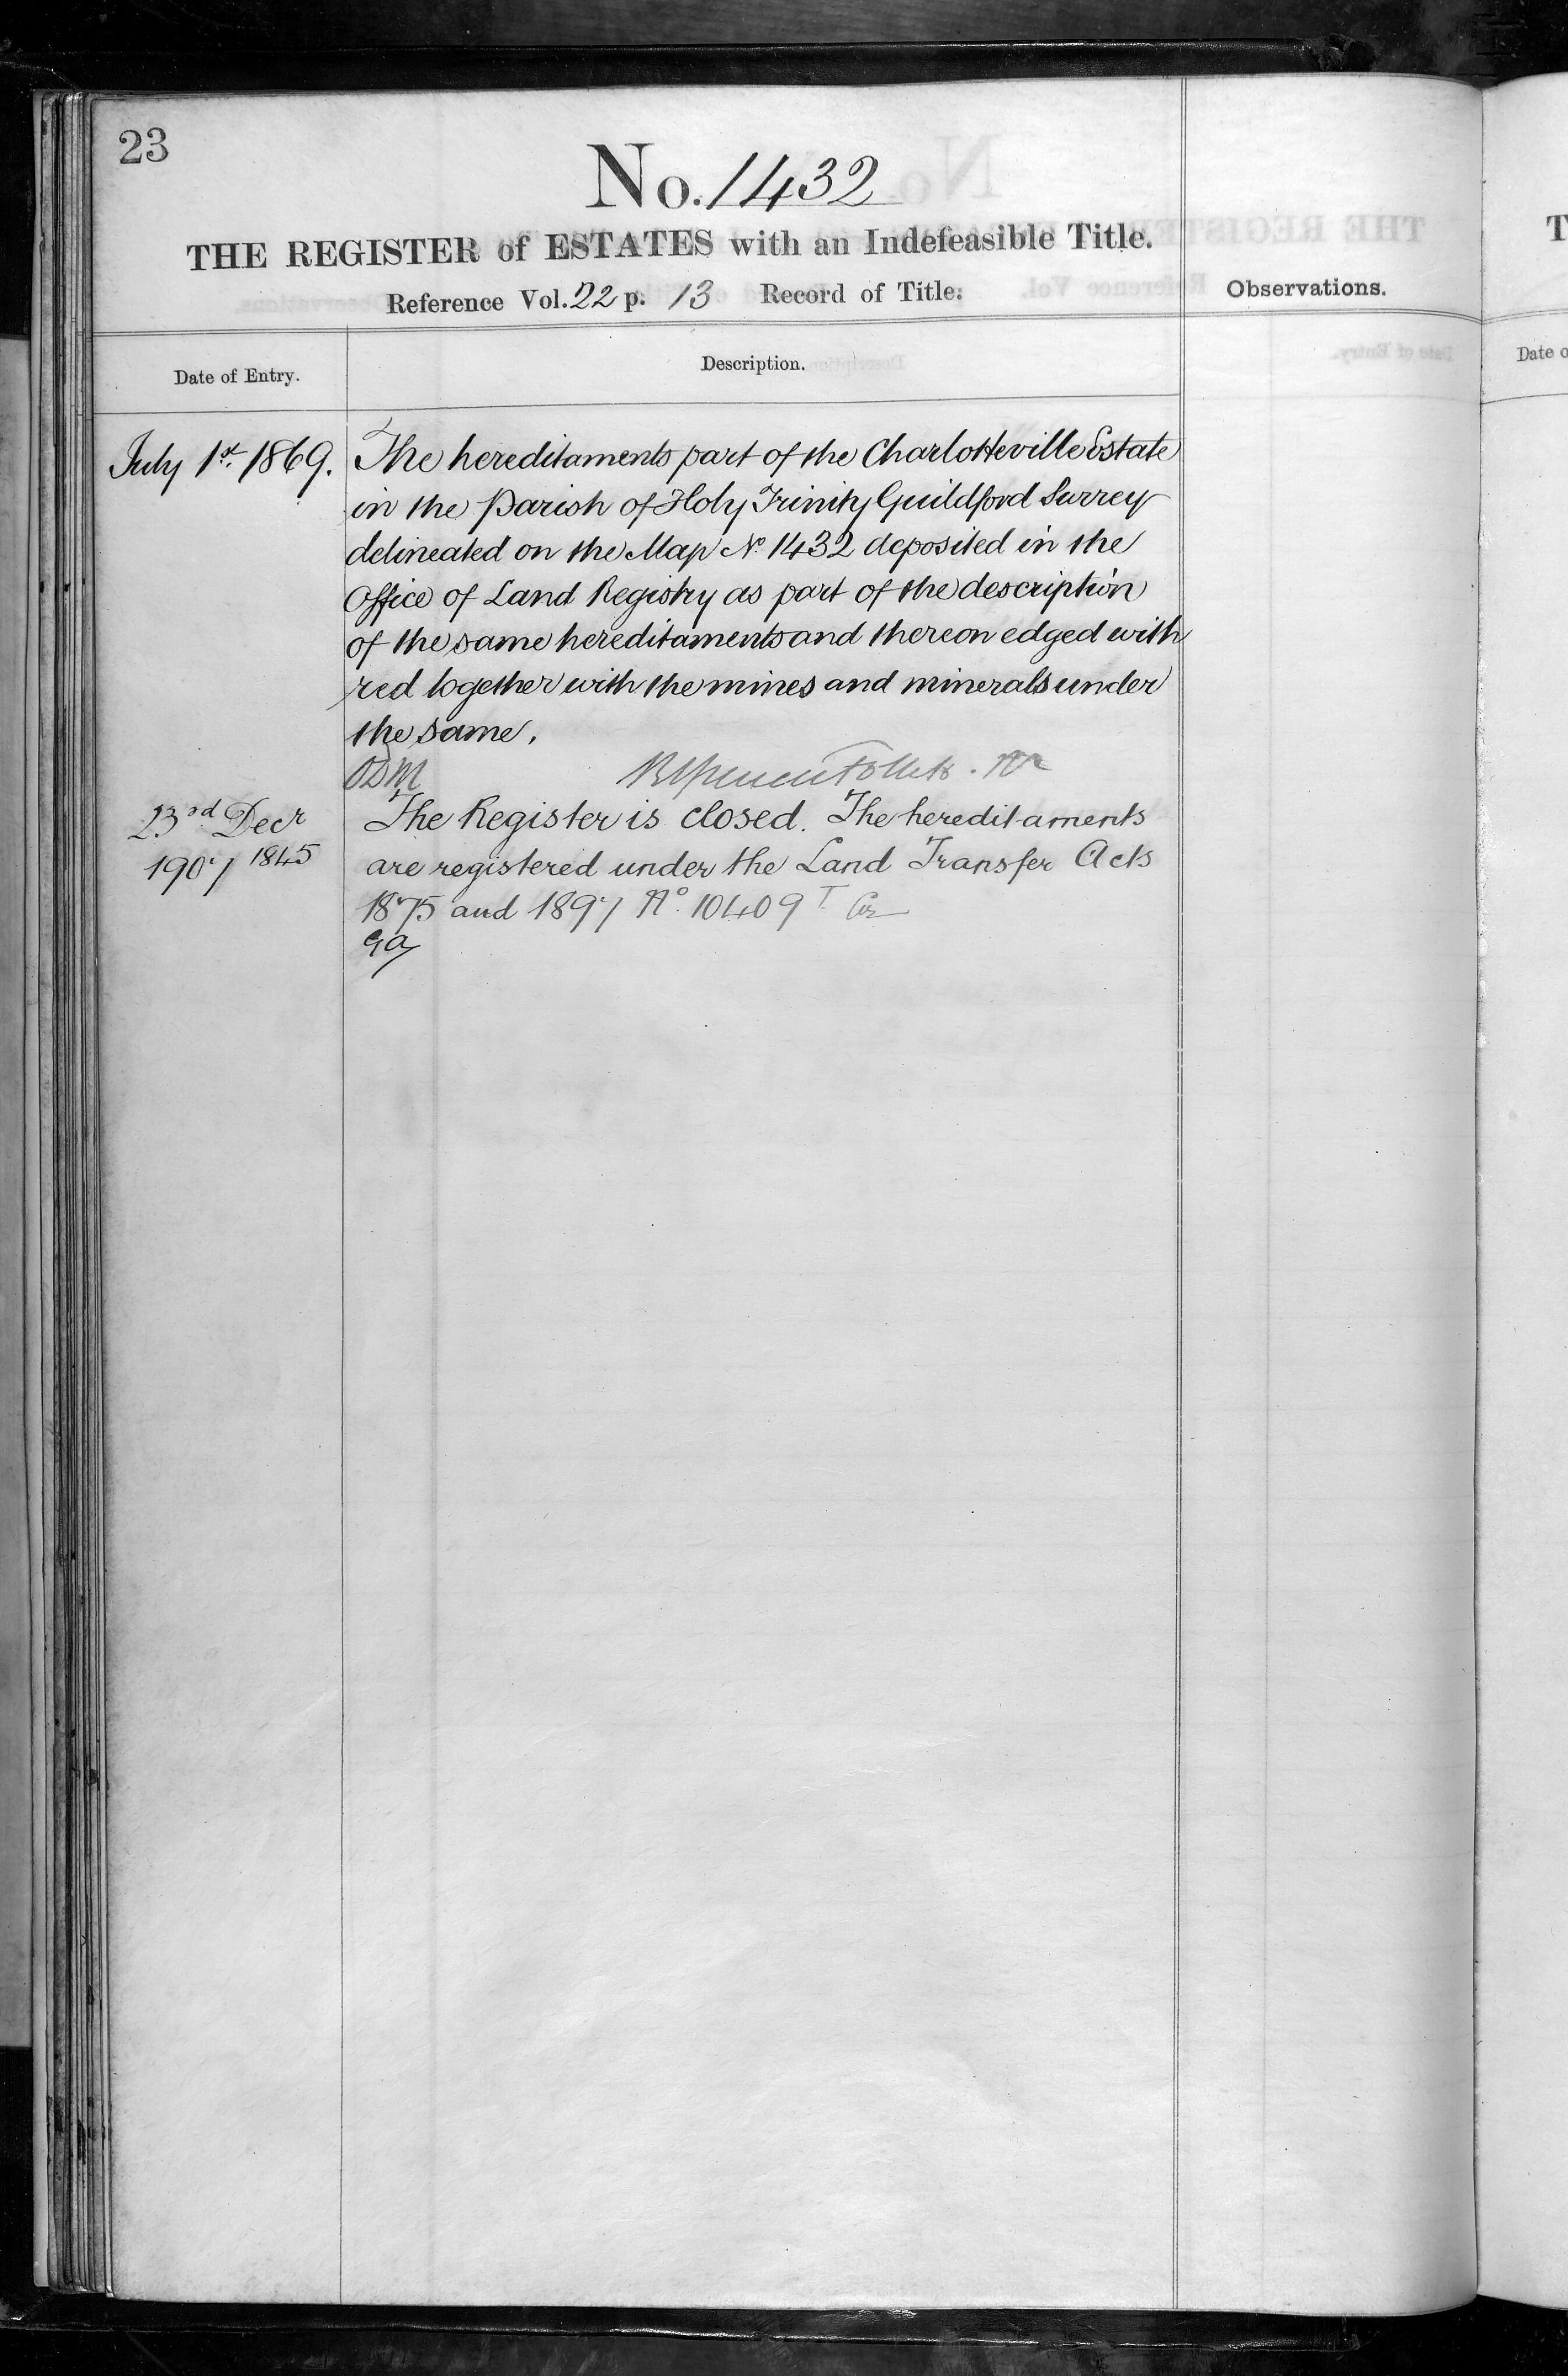 23
No. 1432
THE REGISTER of ESTATES with an Indefeasible Title.
Reference Vol. 22 p. 13 Record of Title.
Observations.
Date of Entry.
Description.
July 1st. 1869.
The hereditaments part of the Charlotteville Estate
in the Parish of Holy Trinity Guildford Surrey
delineated on the Map No. 1432 deposited in the
Office of Land Registry as part of the description
of the same hereditaments and thereon edged with
red together with the mines and minerals under
the same.
ODM
23rd Decr
1907 1845
The Register is closed. The hereditaments
are registered under the Land Transfer Acts
1875 and 1897 No. 10409
GA
T
Date o